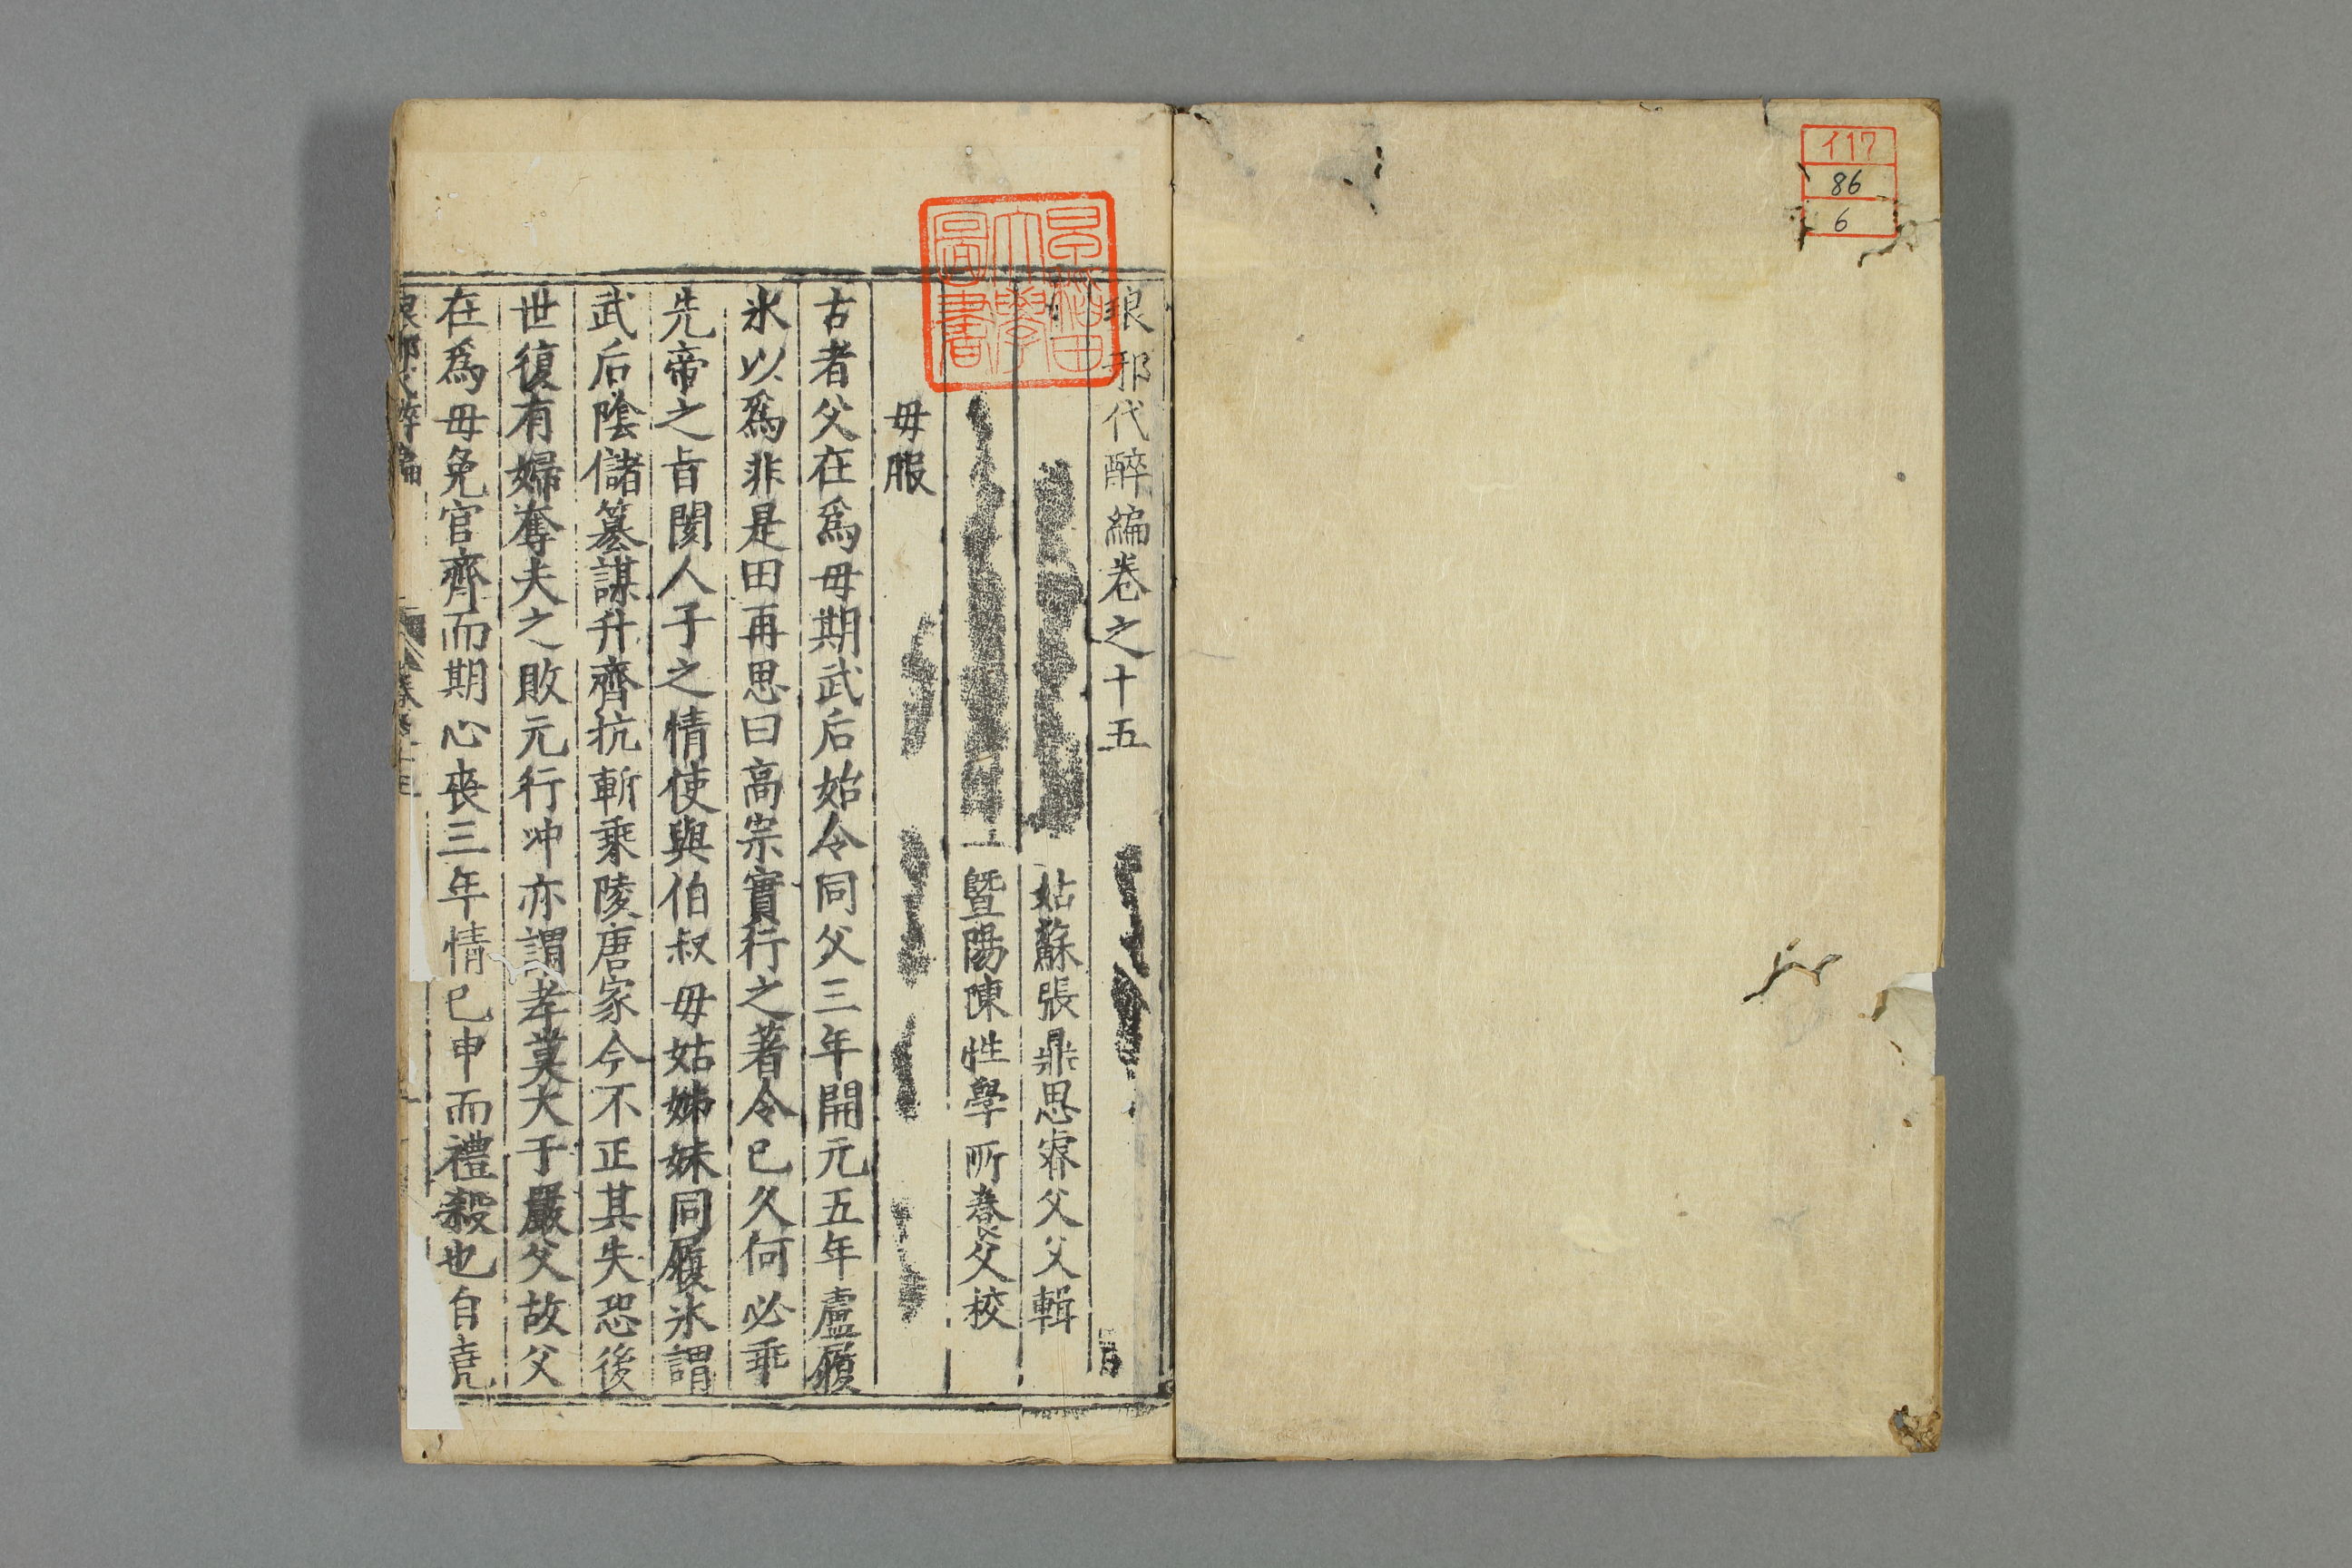 イ17
86
6
早稲田大學圖書
琅邪代醉編卷之十五
姑蘇張鼎思睿父父輯
曁陽陳性學所養父校
毋服
古者父在爲毋期武后始令同父三年開元五年盧履
氷以爲非是田再思曰高宗實行之著令已久何必乖
先帝之旨閡人子之情使與伯叔毋姑姊妹同履氷謂
武后陰儲簒謀升齊抗斬乗陵唐家今不正其失恐後
世復有婦奪夫之敗元行冲亦謂孝莫大于嚴父故父
在爲毋免官齊而期心喪三年情已申而禮殺也自堯